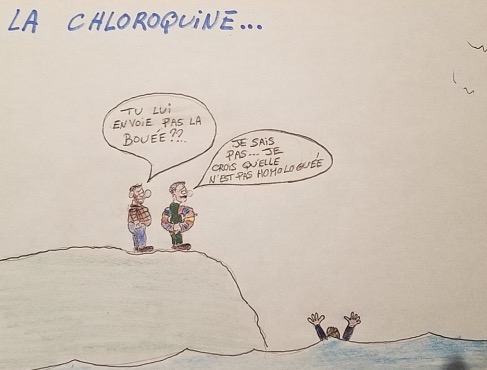 LA CHLOROQUINE...
TU LUI
ENVOIE PAS LA
BOUÉE??...
JE SAIS
PAS... JE
CROIS QU'ELLE
N'EST PAS HOMOLOGUÉE